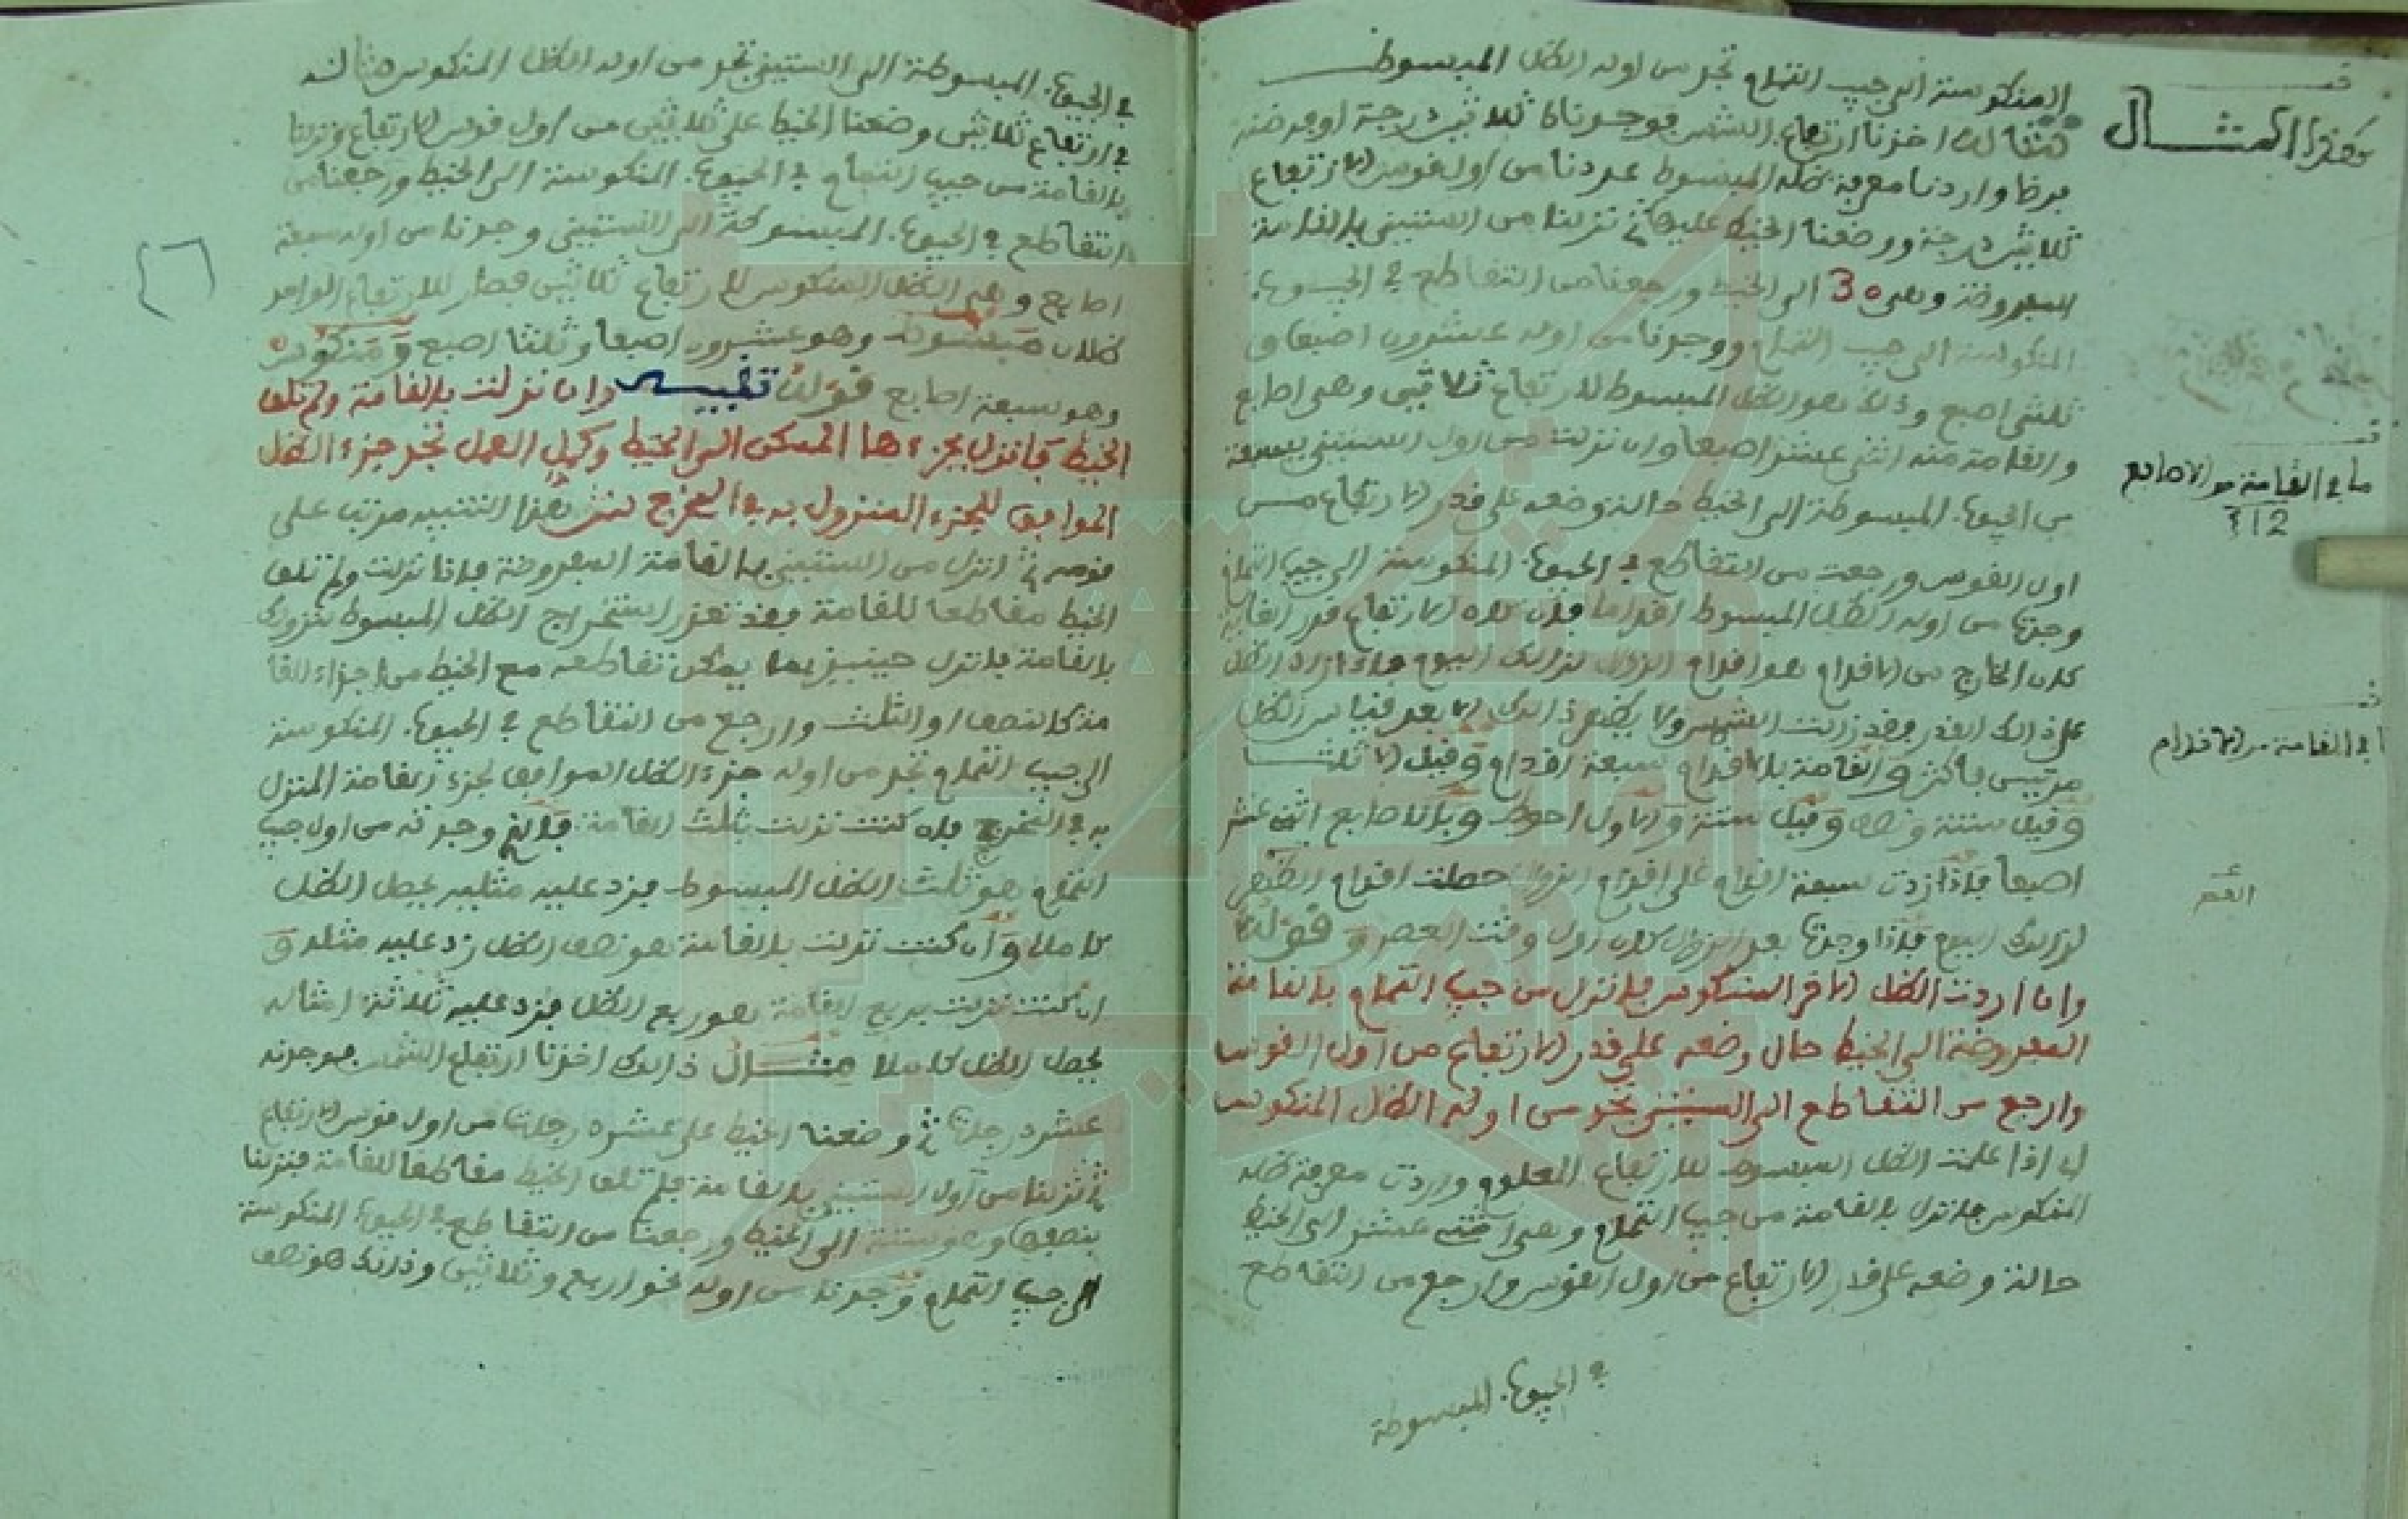 المنكوسة الى جيب التمام تجد من اوله الظل المبسوط
مثاله اخذنا ارتفاع الشمس فوجدناه ثلاثين درجة او فرضنه
فرضا واردنا معرفة ظله المبسوط عددنا من اول قوس الارتفاع
ثلاثين درجة ووضعنا الخيط عليها ثم نزلنا من الستيني بالقامة
المفروضة وهى 30 الى الخيط ورجعنا من التقاطع في الجيوب
المنكوسة الى جيب التمام ووجدنا من اوله عشرون اصبعا و
ثلثى اصبع وذلك هو الظل المبسوط للارتفاع ثلاثين وهى اصابع
والقامة منه اثنى عشر اصبعا وان نزلت من اول الستيني بسبعة
من الجيوب المبسوطة الى الخيط حالة وضعه على قدر الارتفاع مـن
اول القوس ورجعت من التقاطع في الجيوب المنكوسة الى جيب التمام
وجدتها من اوله الظل المبسوط اقداما فان كان الارتفاع قدر الغاية
كان الخارج من الاقدام هو اقدام الزوال لذالك اليوم فاذا زاد الظل
على ذالك القدر فقد زالت الشمس ولا يظهر ذالك الا بعد قياس الظل
مرتين فاكثر والقامة بالاقدام سبعة اقدام وقيل الا ثلثـا
وقيل ستة ونصف وقيل ستة والاول احوط وبالاصابع اثنى عشر
اصبعا فاذا زدت سبعة اقدام على اقدام الزوال حصلت اقدام الظهر
لذالك اليوم فاذا وجدتها بعد الزوال كان اول وقت العصر وقوله
وان اردت الظل الاخر المنكوس فانزل من جيب التمام بالقامة
المفروضة الى الخيط حال وضعه على قدر الارتفاع من اول القوس
وارجع من التقاطع الى الستيني تجد من اوله الظل المنكوس
اى اذا علمت الظل المبسوط للارتفاع المعلوم واردت معرفة ظله
المنكوس فانزل بالقامة من جيب التمام وهى اثنى عشر الى الخيط
حالة وضعه على قدر الارتفاع من اول القوس وارجع من التقاطع
في الجيوب المبسوطة
هكذا المثـــال
ما في القامة من الاصابع
12
في القامة من الاقدام
في الجيوب المبسوطة الى الستيني تجد من اوله الظل المنكوس مثاله
في ارتفاع ثلاثين وضعنا الخيط على ثلاثين من اول قوس الارتفاع ونزلنا
بالقامة من جيب التمام في الجيوب المنكوسة الى الخيط ورجعنا من
التقاطع في الجيوب المبسوطة الى الستيني وجدنا من اوله سبعة
اصابع وهى الظل المنكوس للارتفاع ثلاثين فصار للارتفاع الواحد
ظلان مبسوط وهو عشرون اصبعا وثلثا اصبع ومنكوس
وهو سبعة اصابع قوله تنبيـــه وان نزلت بالقامة ولم تلق
الخيط فانزل بجزءها الممكن الى الخيط وكمل العمل تجد جزء الظل
الموافق للجزء المنزول به في المخرج ش هذا التنبيه مرتب على
قوله ثم انزل من الستيني بالقامة المفروضة فاذا نزلت ولم تلق
الخيط مقاطعا للقامة فقد تعذر استخراج الظل المبسوط بنزولك
بالقامة فانزل حينيذ بما يمكن تقاطعه مع الخيط من اجزاء القا
مة كالنصف او الثلث وارجع من التقاطع في الجيوب المنكوسة
الى جيب التمام تجد من اوله جزء الظل الموافق لجزء القامة المنزل
به في المخرج فان كنت نزلت بثلث القامة فالذى وجدته من اول جيب
التمام هو ثلث الظل المبسوط فزد عليه مثليه يحصل الظل
كاملا وان كنت نزلت بالقامة هو نصف الظل زد عليه مثله و
ان كنت نزلت بربع القامة هو ربع الظل فزد عليه ثلاثة امثاله
يحصل الظل كاملا مثـــال ذالك اخذنا ارتفاع الشمس فوجدنه
عشر درجات ثم وضعنا الخيط على عشره درجات من اول قوس الارتفاع
ثم نزلنا من اول الستيني بالقامة فلم تلق الخيط مقاطعا للقامة فنزلنا
بنصفها وهو ستة الى الخيط ورجعنا من التقاطع في الجيوب المنكوسة
الى جيب التمام وجدنا من اوله نحو اربع وثلاثين وذالك هو نصف